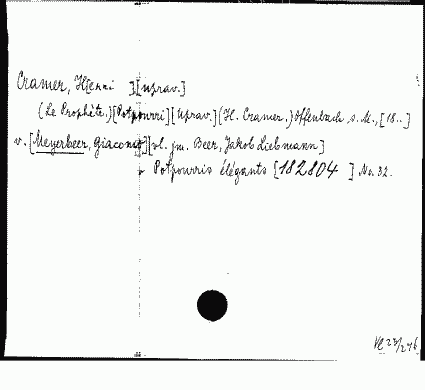 Cramer, H[enri ][uprav.]
(Le Prophète.)[Potpourri][Uprav.](H. Cramer.) Offenbach s. M., [18..]
v. [Meyerbeer, Giacomo][vl. jm. Beer, Jakob Liebmann]
Potpourris élégants [182804 ] No. 32.